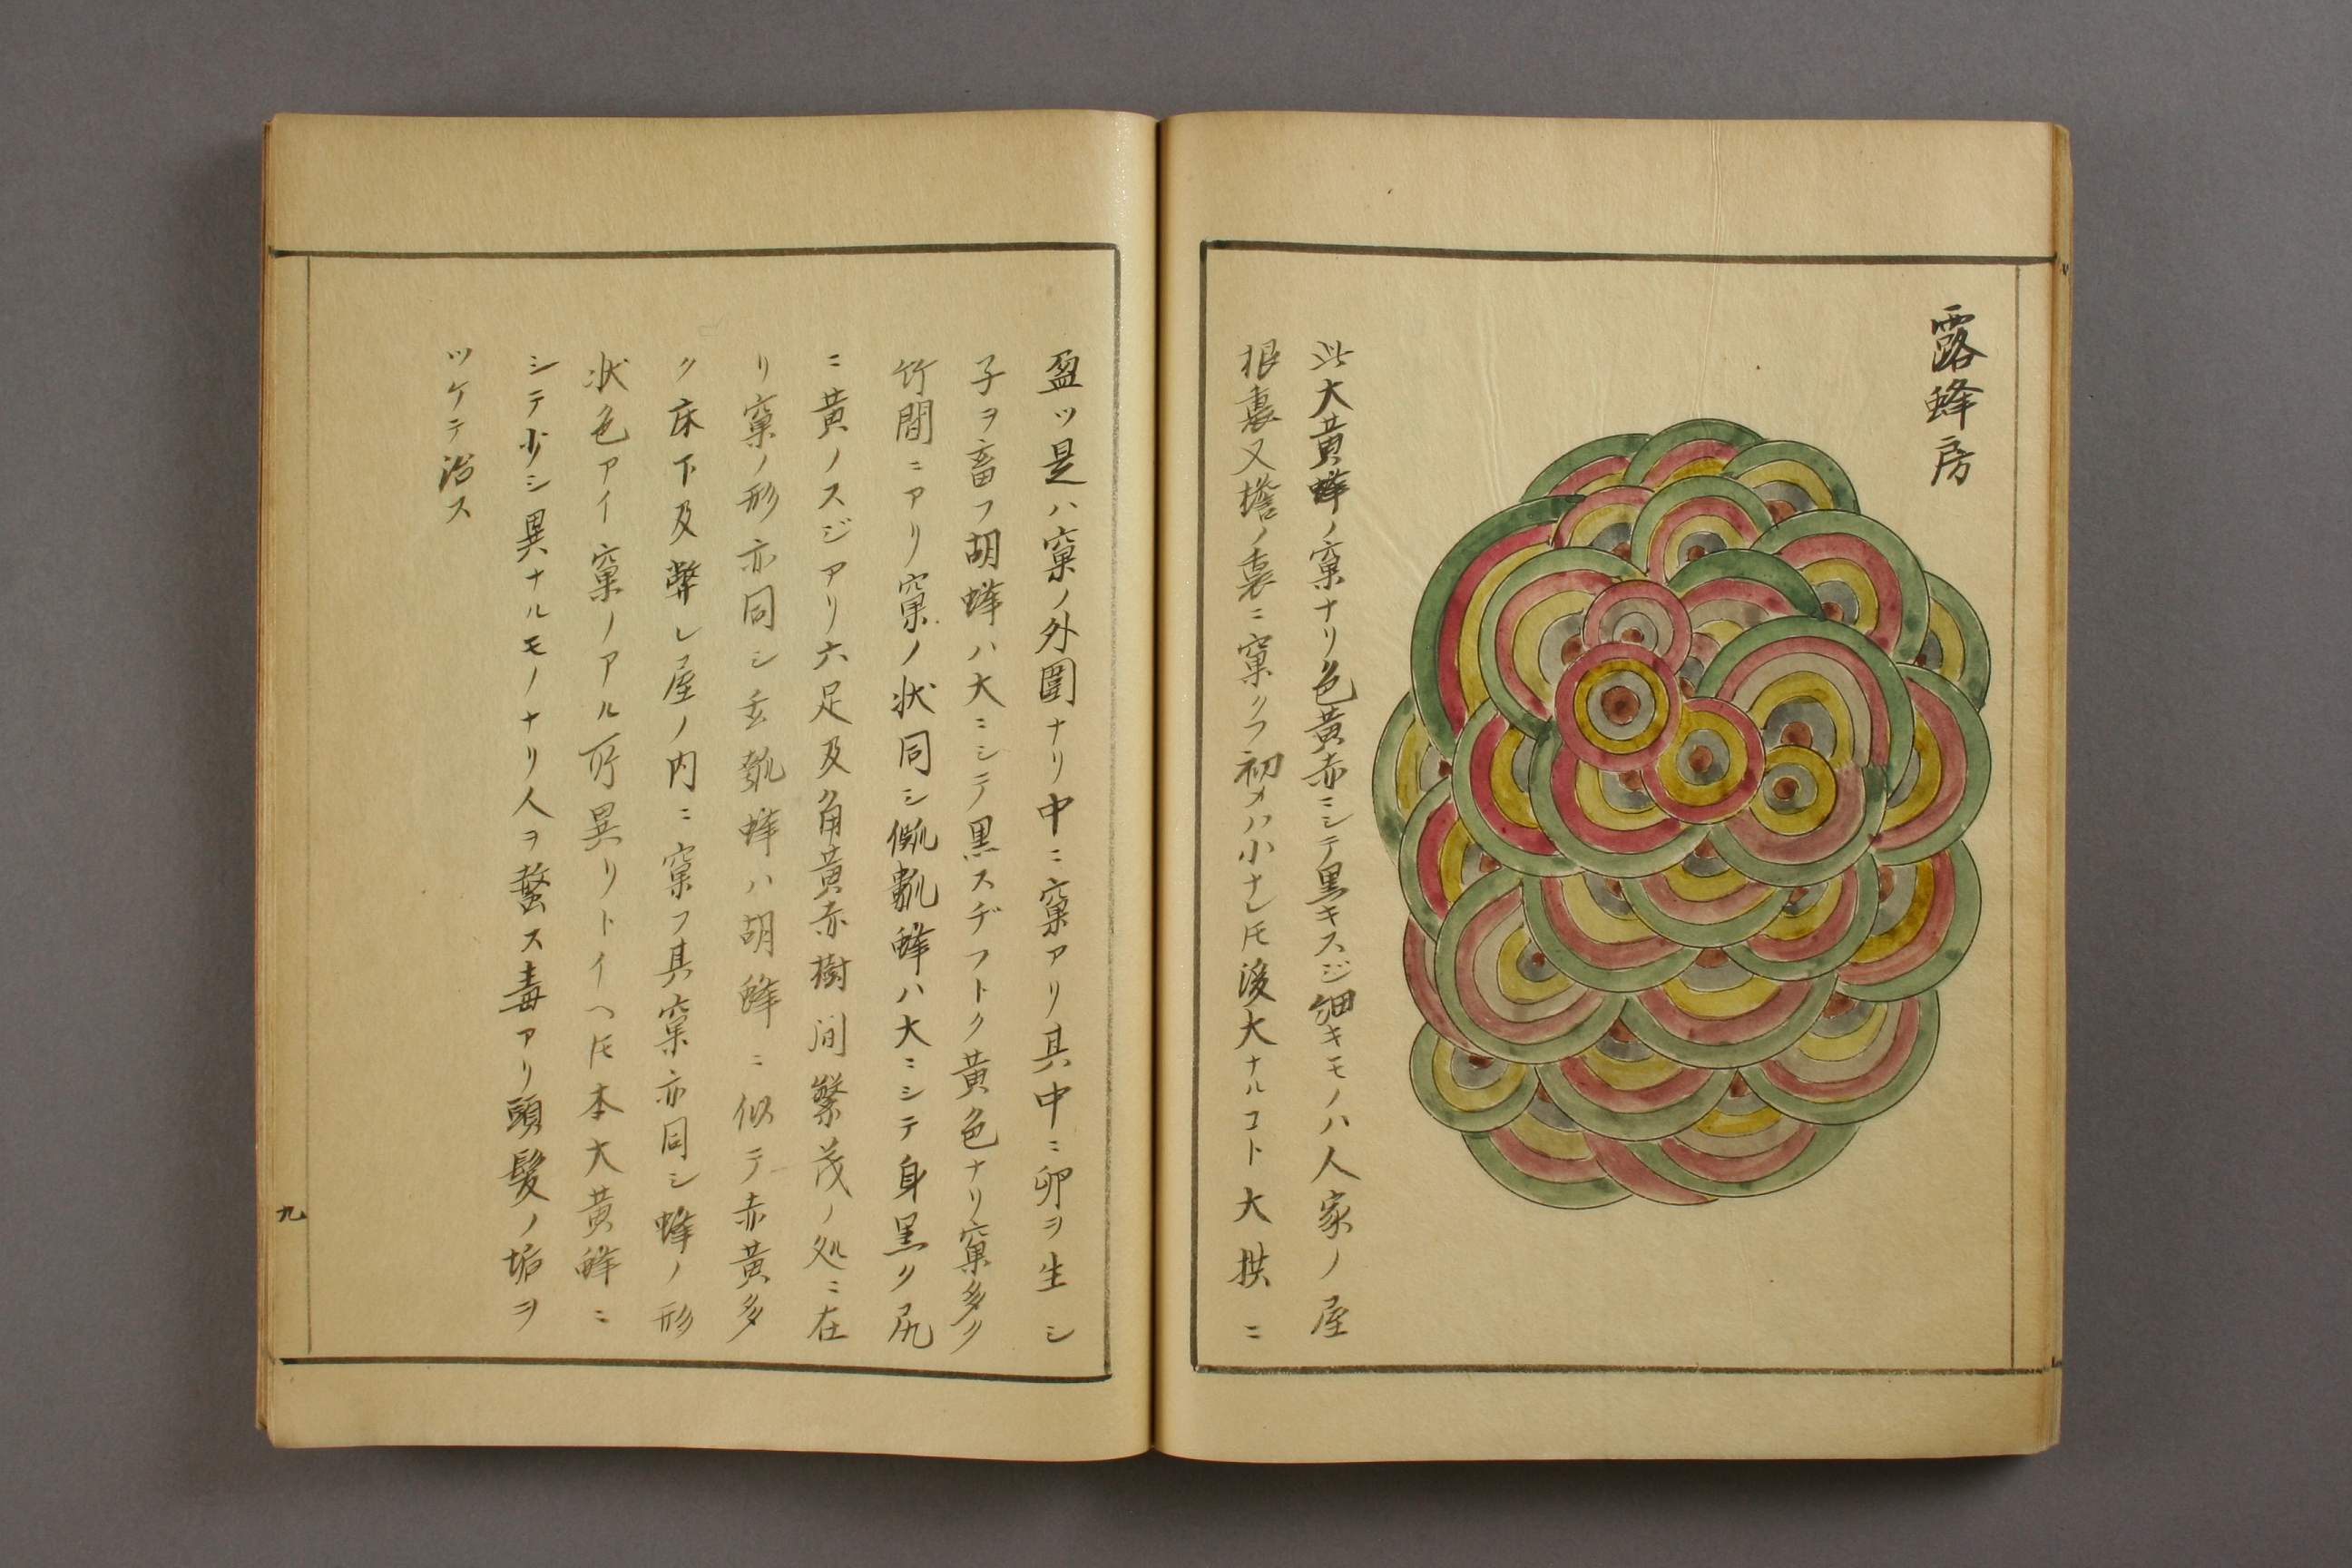 露蜂房
此大黄蜂ノ窠ナリ色黄赤ニシテ黒キスジ細キモノハ人家ノ屋
根裏又檐ノ裏ニ窠クフ初メハ小ナレ𪜈後大ナルコト大拱ニ
盈ツ是ハ窠ノ外圍ナリ中ニ窠アリ其中ニ卵ヲ生シ
子ヲ畜フ胡蜂ハ大ニシテ黒スヂフトク黄色ナリ窠多ク
竹間ニアリ窠ノ状同シ
蜂ハ大ニシテ身黒ク尻
ニ黄ノスジアリ六足及角黄赤樹間繁茂ノ処ニ在
リ窠ノ形亦同シ
蜂ハ胡蜂ニ似テ赤黄多
ク床下及弊レ屋ノ内ニ窠フ其窠亦同シ蜂ノ形
状色アイ窠ノアル所異リトイヘ𪜈本大黄蜂ニ
シテ少シ異ナルモノナリ人ヲ螫ス毒アリ頭髪ノ垢ヲ
ツケテ治ス
九